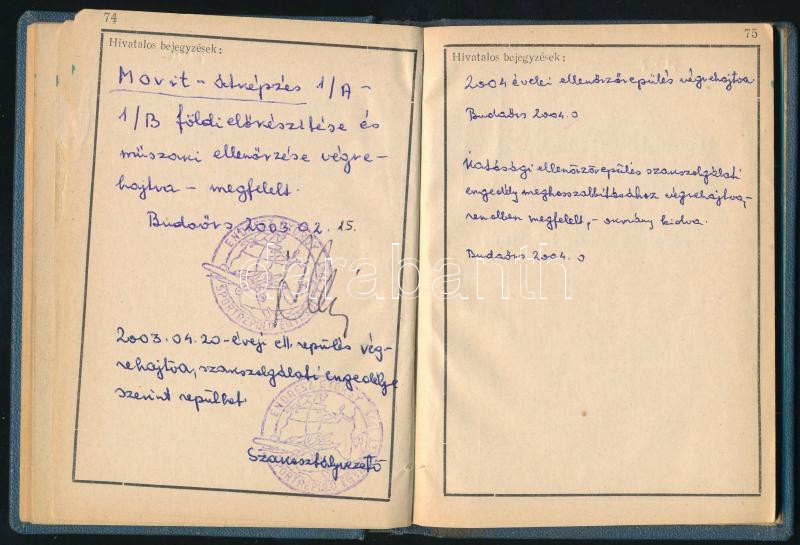 74
Hivatalos bejegyzések:
Movit - átképzés 1/A -
1/B földi előkészítése és
műszaki ellenőrzése végre-
hajtva - megfelelt.
Budaörs 2003.02.15.
2003.04.20-évej ell repülés vég-
rehajtva, szakszolgálati engedélye
szerint repülhet.
Szakosztályvezető
75
Hivatalos bejegyzések:
2004 évelei ellenőrzőrepülés végrehajtva.
Budaörs 2004.0
Hatósági ellenőrzőrepülés szakszolgálati
engedély meghosszabbításához végrehajtva,-
rendben megfelelt,- okmány kiadva.
Budaörs 2004.0
darabanth